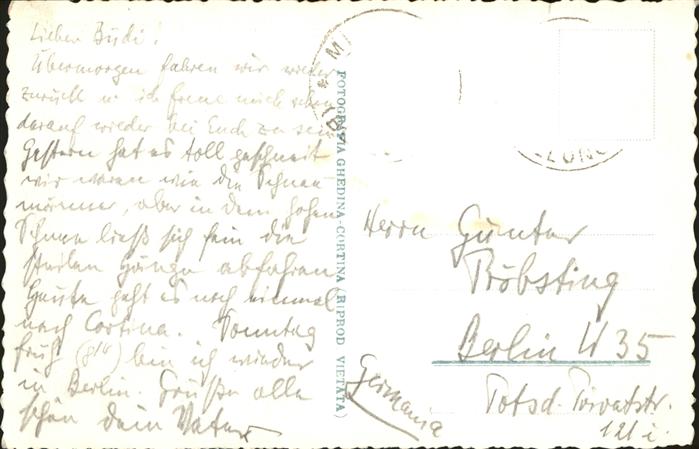 Lieber Büdi!
Übermorgen fahren wir wieder
zurück u. ich freue mich schon
darauf wieder bei Euch zu sein
Gestern hat es toll geschneit
wir waren wie die Schnee-
männer, aber in dem hohen
Schnee ließ sich fein die
steilen Hänge abfahren
Heute geht es noch einmal
nach Cortina. Sonntag
früh (8¹⁰) bin ich wieder
in Berlin. Grüße alle
schön dein Vater
FOTOGRAFIA GHEDINA-CORTINA (RIPROD VIETATA)
Herrn Günter
Pröbsting
Berlin W 35
Potsd. Privatstr.
121 i.
Germania